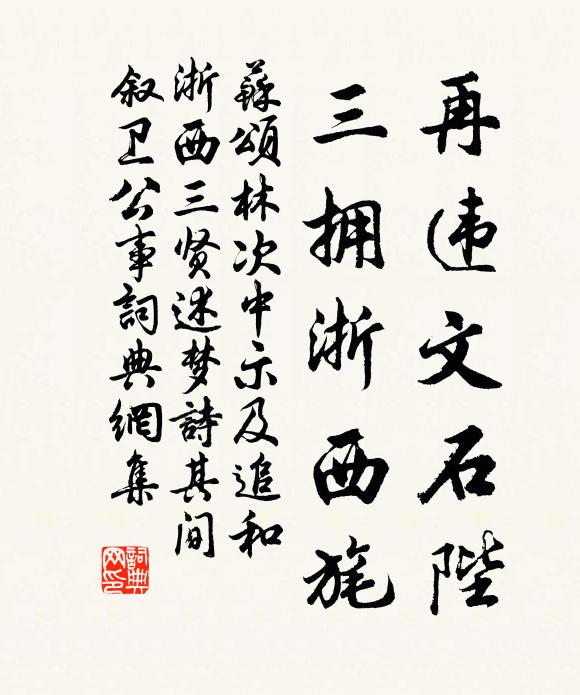 再违文石陛
三拥浙西旄
蘇頌林次中示及追和
浙西三贤述梦詩其间
叙卫公事詞典網集
詞典网印